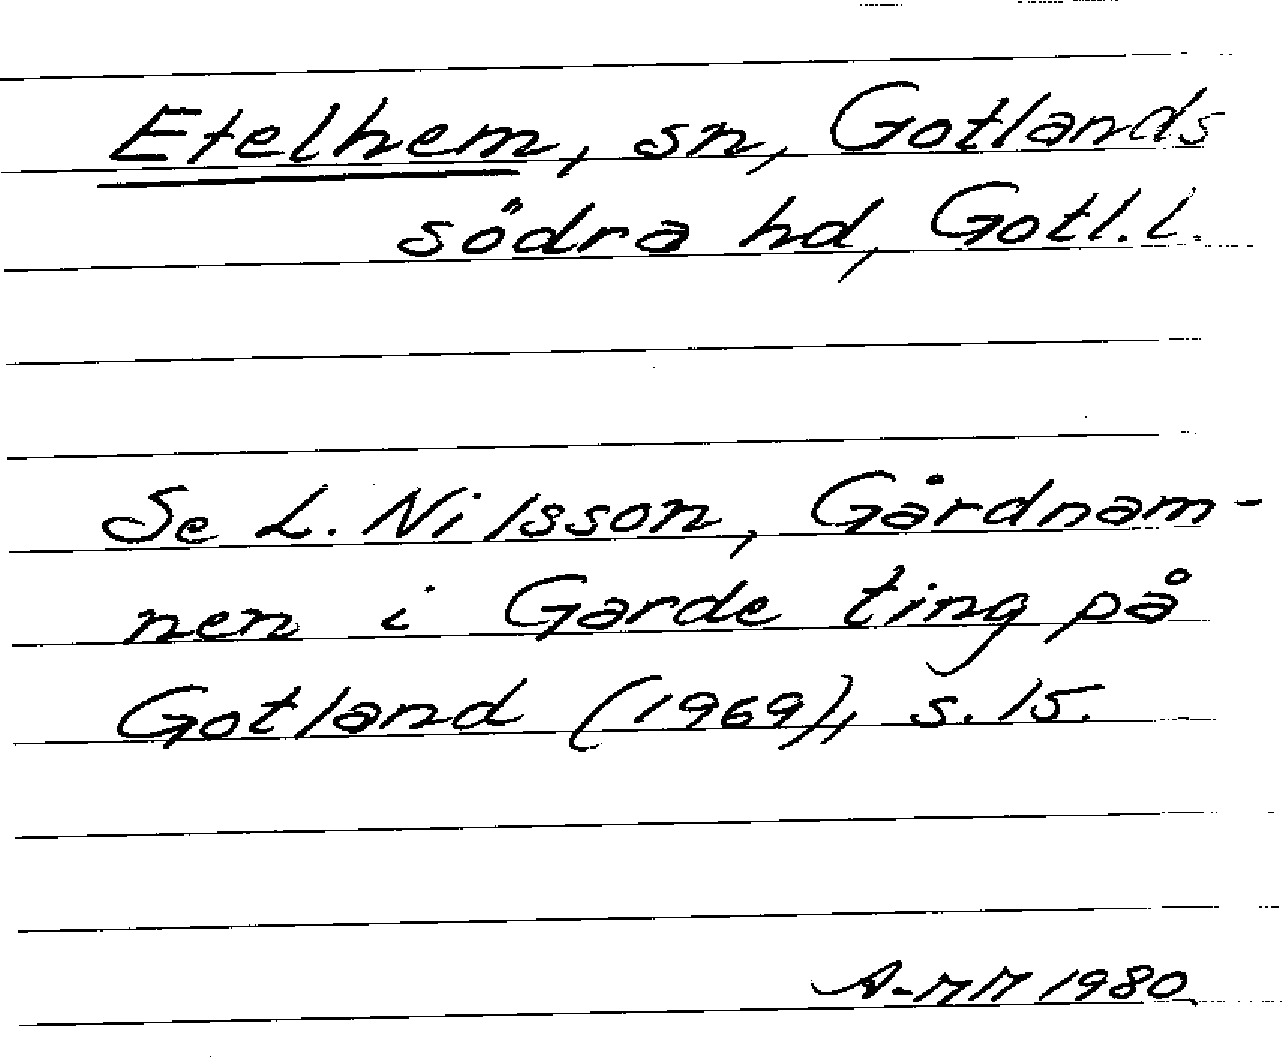 Etelhem, sn, Gotlands
södra hd, Gotl. l.
Se L. Nilsson, Gårdnam-
nen i Garde ting på
Gotland (1969), s. 15.
A-MM 1980